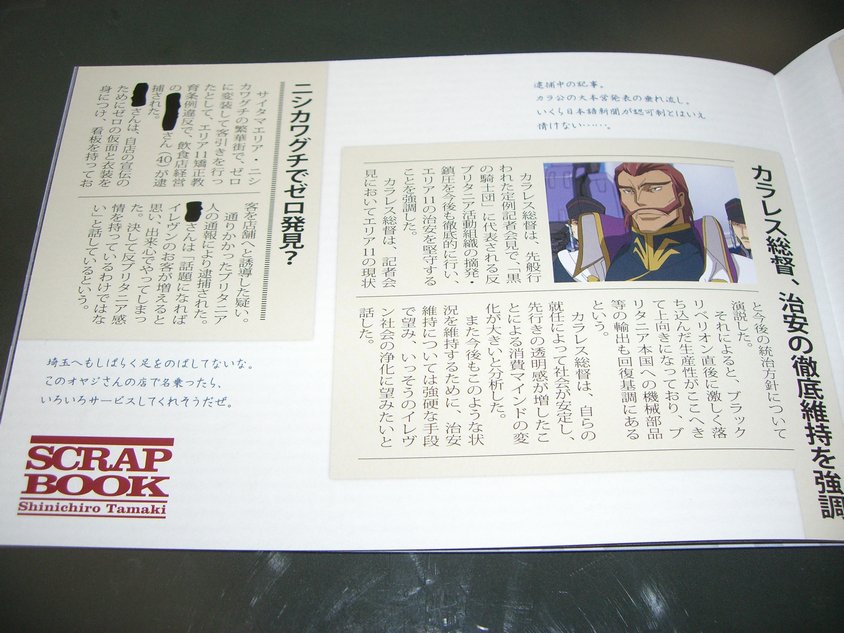 逮捕中の記事。
カラ公の大本営発表の垂れ流し。
いくら日本語新聞が認可制とはいえ
情けない……。
カラレス総督、治安の徹底維持を強調
カラレス総督は、先般行
われた定例記者会見で、「黒
の騎士団」に代表される反
ブリタニア活動組織の摘発・
鎮圧を今後も徹底的に行い、
エリア11の治安を堅守する
ことを強調した。
カラレス総督は、記者会
見においてエリア11の現状
と今後の統治方針について
演説した。
それによると、ブラック
リベリオン直後に激しく落
ち込んだ生産性がここへき
て上向きになっており、ブ
リタニア本国への機械部品
等の輸出も回復基調にある
という。
カラレス総督は、自らの
就任によって社会が安定し、
先行きの透明感が増したこ
とによる消費マインドの変
化が大きいと分析した。
また今後もこのような状
況を維持するために、治安
維持については強硬な手段
で望み、いっそうのイレヴ
ン社会の浄化に望みたいと
話した。
ニシカワグチでゼロ発見？
サイタマエリア・ニシ
カワグチの繁華街で、ゼロ
に変装して客引きを行っ
たとして、エリア11矯正教
育条例違反で、飲食店経営
の
さん（40）が逮
捕された。
さんは、自店の宣伝の
ためにゼロの仮面と衣装を
身につけ、看板を持ってお
客を店舗へと誘導した疑い。
通りかかったブリタニア
人の通報により逮捕された。
さんは「話題になれば
イレヴンのお客が増えると
思い、出来心でやってしまっ
た。決して反ブリタニア感
情を持っているわけではな
い」と話しているという。
埼玉へもしばらく足をのばしてないな。
このオヤジさんの店で名乗ったら、
いろいろサービスしてくれそうだぜ。
SCRAP
BOOK
Shinichiro Tamaki